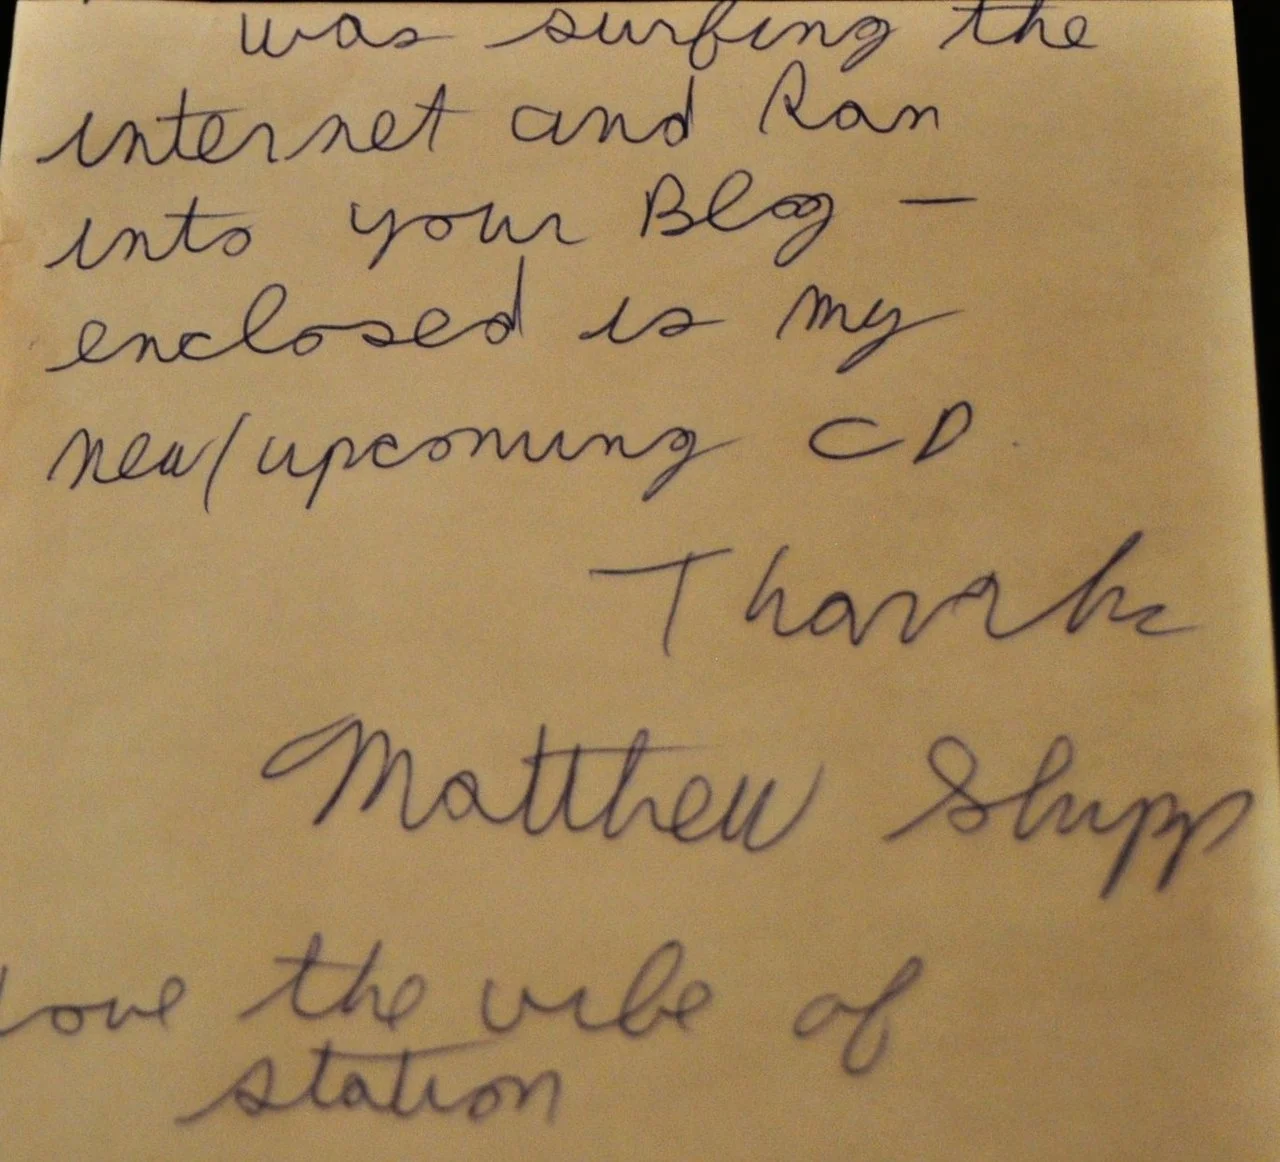 was surfing the
internet and Ran
into your Blog —
enclosed is my
new/upcoming CD.
Thanks
Matthew Shupp
love the vibe of
station